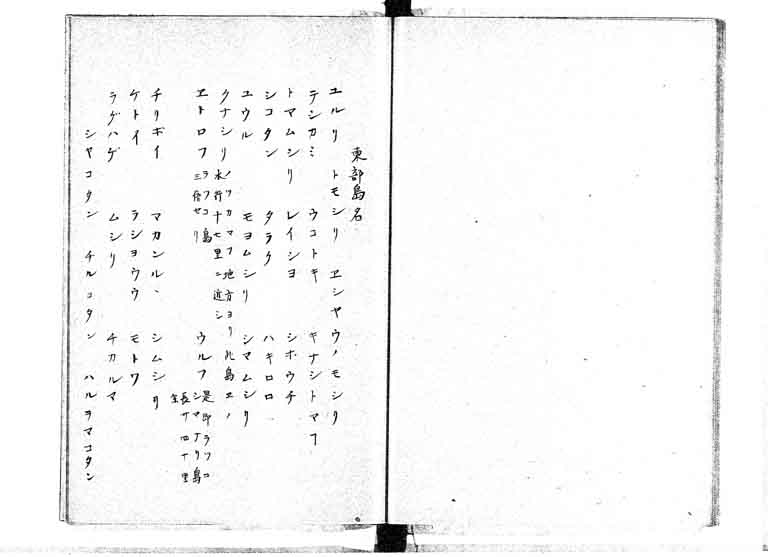 東部島名
ユルリ トモシリ ヱシヤウノモシリ
テンカミ ウコトキ キナシトマフ
トマムシリ レイシヨ シボウチ
シコタン タラク ハキロロ
ユウル モヨムシリ シマムシリ
クナシリ ノツカマフ地方ヨリ此島ヱノ
水行十七里ニ近シ
ヱトロフ ラフコ島
三倍セリ ウルフ 是即ラフコ
シマナリ島
長サ四十里
チリホイ マカンルヽ シムシリ
ケトイ ラシヨウウ モトワ
ラグハゲ ムシリ チカルマ
シヤコタン チルコタン ハルヲマコタン